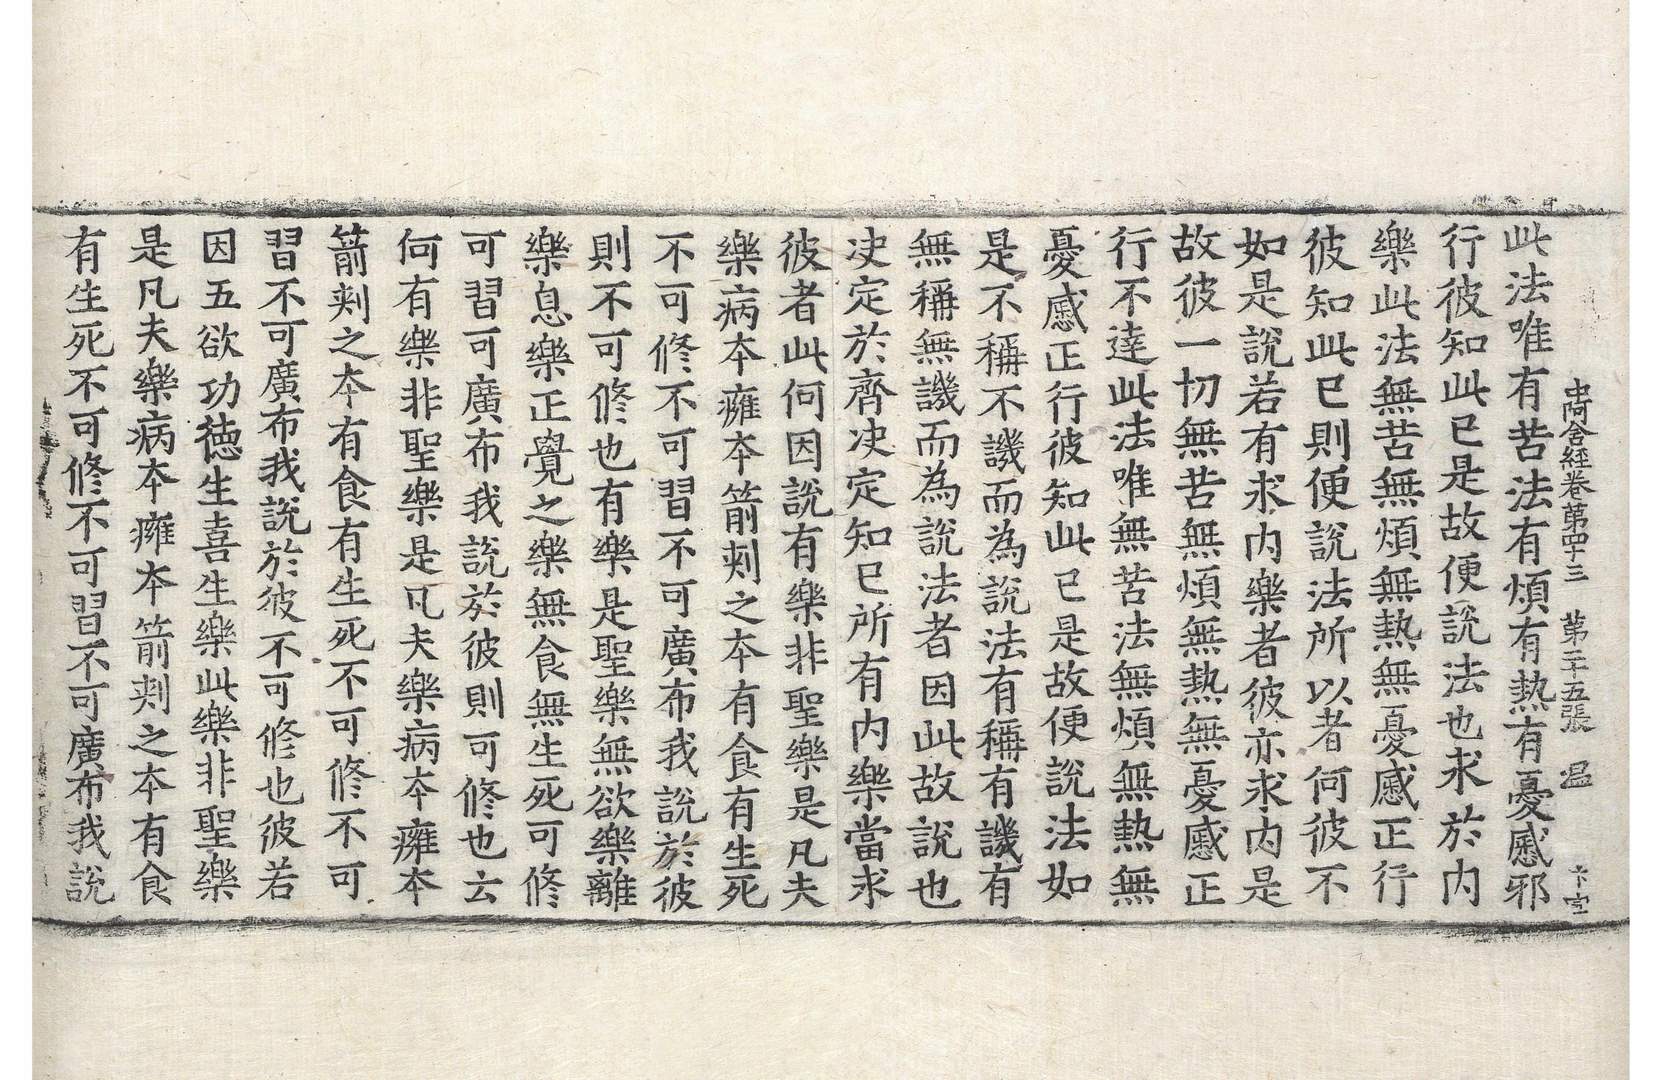 中阿含經卷第四十三 第二十五張 温
此法唯有苦法有煩有熱有憂慼邪
行彼知此已是故便說法也求於內
樂此法無苦無煩無熱無憂慼正行
彼知此已則便說法所以者何彼不
如是說若有求內樂者彼亦求內是
故彼一切無苦無煩無熱無憂慼正
行不達此法唯無苦法無煩無熱無
憂慼正行彼知此已是故便說法如
是不稱不譏而為說法有稱有譏有
無稱無譏而為說法者因此故說也
决定於齊决定知已所有內樂當求
彼者此何因說有樂非聖樂是凡夫
樂病本癰本箭刾之本有食有生死
不可修不可習不可廣布我說於彼
則不可修也有樂是聖樂無欲樂離
樂息樂正覺之樂無食無生死可修
可習可廣布我說於彼則可修也云
何有樂非聖樂是凡夫樂病本癰本
箭刾之本有食有生死不可修不可
習不可廣布我說於彼不可修也彼若
因五欲功德生喜生樂此樂非聖樂
是凡夫樂病本癰本箭刾之本有食
有生死不可修不可習不可廣布我說